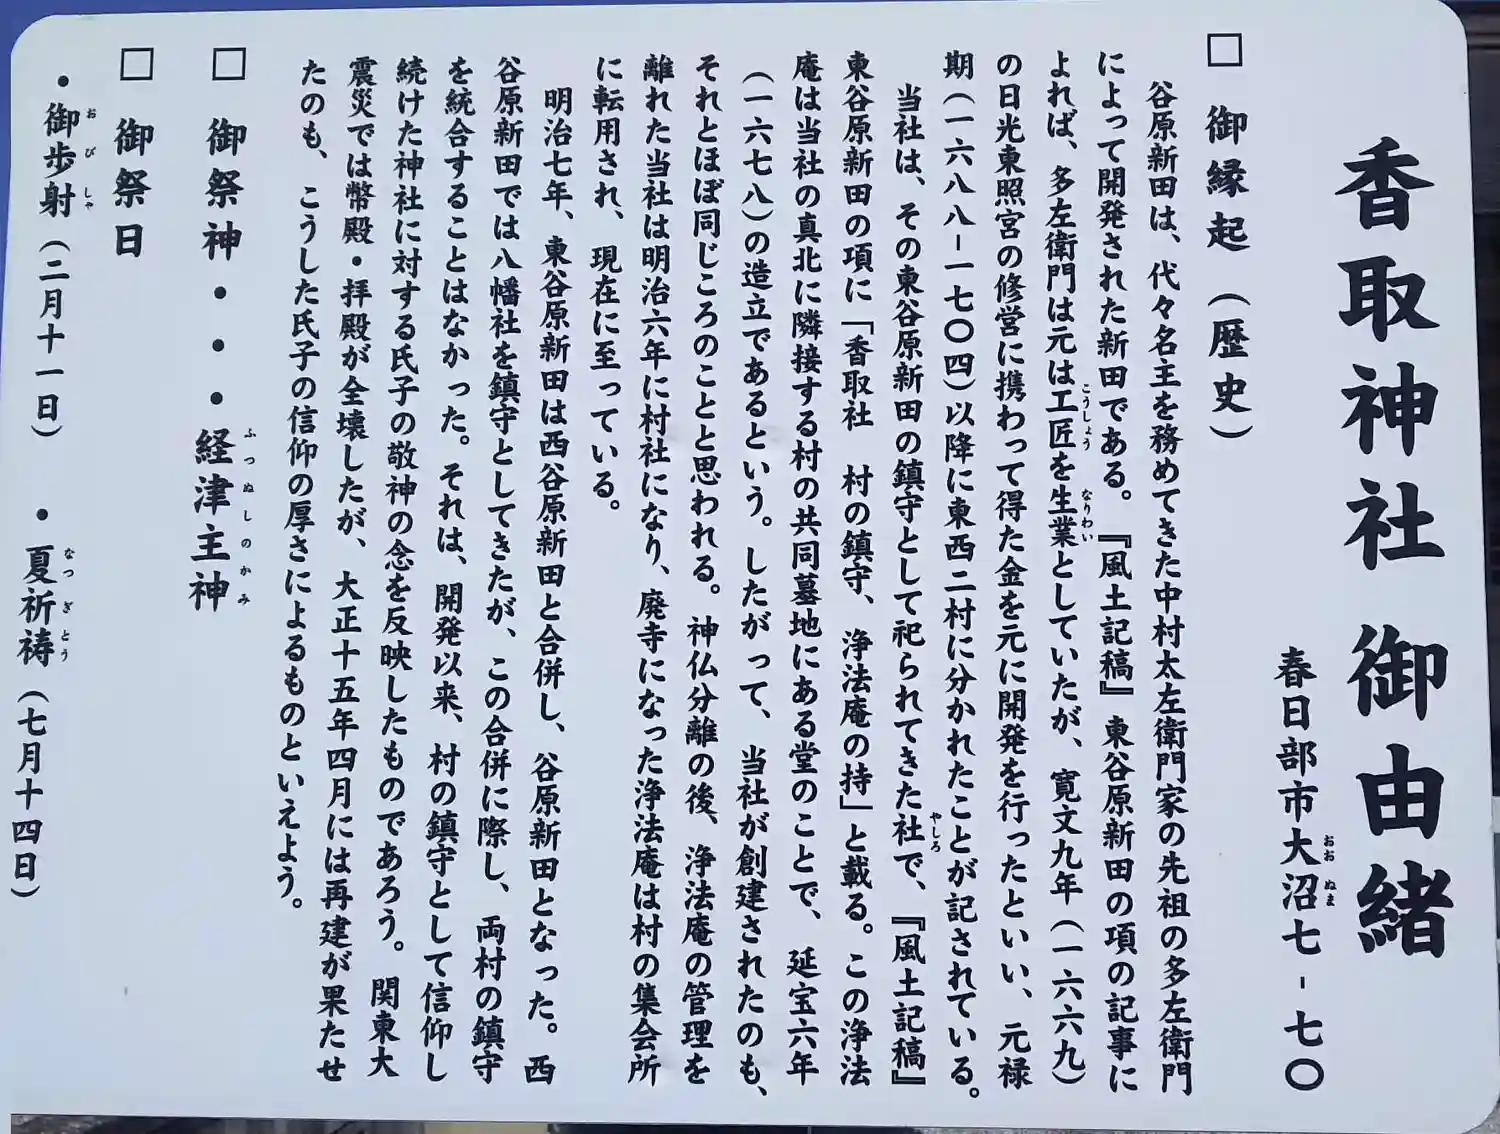 香取神社 御由緒
春日部市大沼七-七〇
おお ぬま
□ 御縁起(歴史)
谷原新田は、代々名主を務めてきた中村太左衛門家の先祖の多左衛門
によって開発された新田である。『風土記稿』東谷原新田の項の記事に
よれば、多左衛門は元は工匠を生業としていたが、寛文九年(一六六九)
こうしょう なりわい
の日光東照宮の修営に携わって得た金を元に開発を行ったといい、元禄
期(一六八八-一七〇四)以降に東西二村に分かれたことが記されている。
当社は、その東谷原新田の鎮守として祀られてきた社で、『風土記稿』
やしろ
東谷原新田の項に「香取社 村の鎮守、浄法庵の持」と載る。この浄法
庵は当社の真北に隣接する村の共同墓地にある堂のことで、延宝六年
(一六七八)の造立であるという。したがって、当社が創建されたのも、
それとほぼ同じころのことと思われる。神仏分離の後、浄法庵の管理を
離れた当社は明治六年に村社になり、廃寺になった浄法庵は村の集会所
に転用され、現在に至っている。
明治七年、東谷原新田は西谷原新田と合併し、谷原新田となった。西
谷原新田では八幡社を鎮守としてきたが、この合併に際し、両村の鎮守
を統合することはなかった。それは、開発以来、村の鎮守として信仰し
続けた神社に対する氏子の敬神の念を反映したものであろう。関東大
震災では幣殿・拝殿が全壊したが、大正十五年四月には再建が果たせ
たのも、こうした氏子の信仰の厚さによるものといえよう。
□ 御祭神・・・経津主神
ふつぬしのかみ
□ 御祭日
・御歩射(二月十一日) ・夏祈祷(七月十四日)
おびしゃ なつぎとう